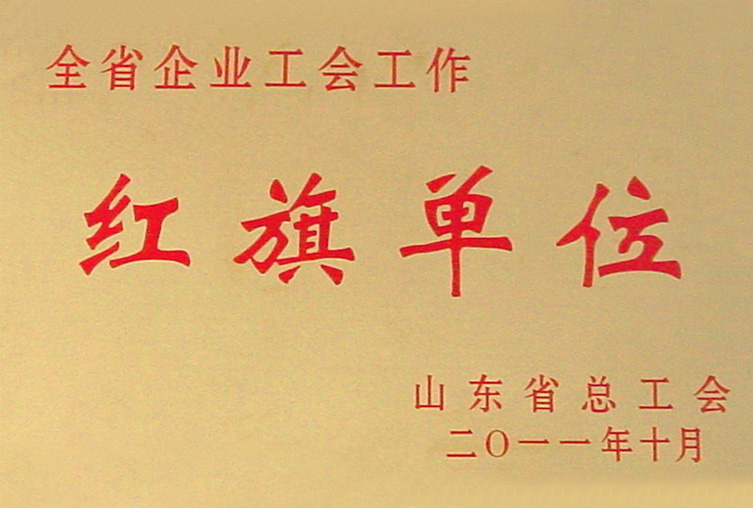 全省企业工会工作
红旗单位
山东省总工会
二〇一一年十月